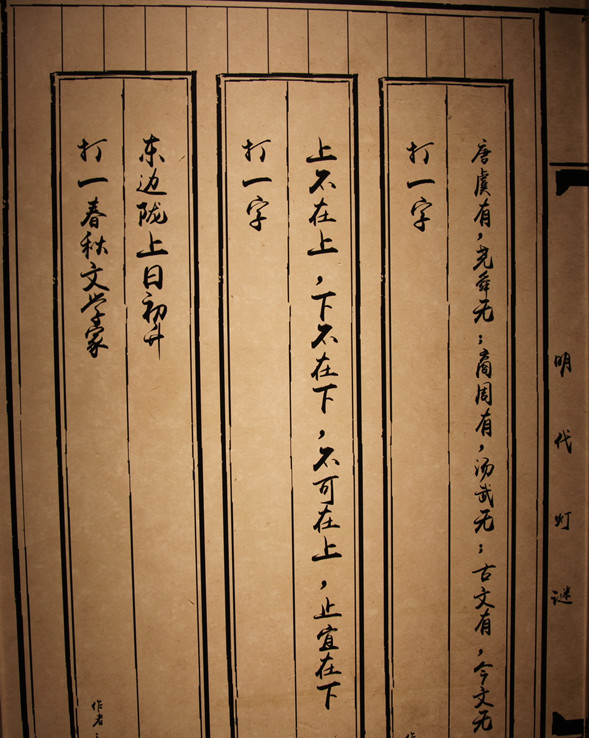 明代灯谜
唐虞有，尧舜无；商周有，汤武无；古文有，今文无
打一字
上不在上，下不在下，不可在上，止宜在下
打一字
东边陇上日初升
打一春秋文学家
作者：